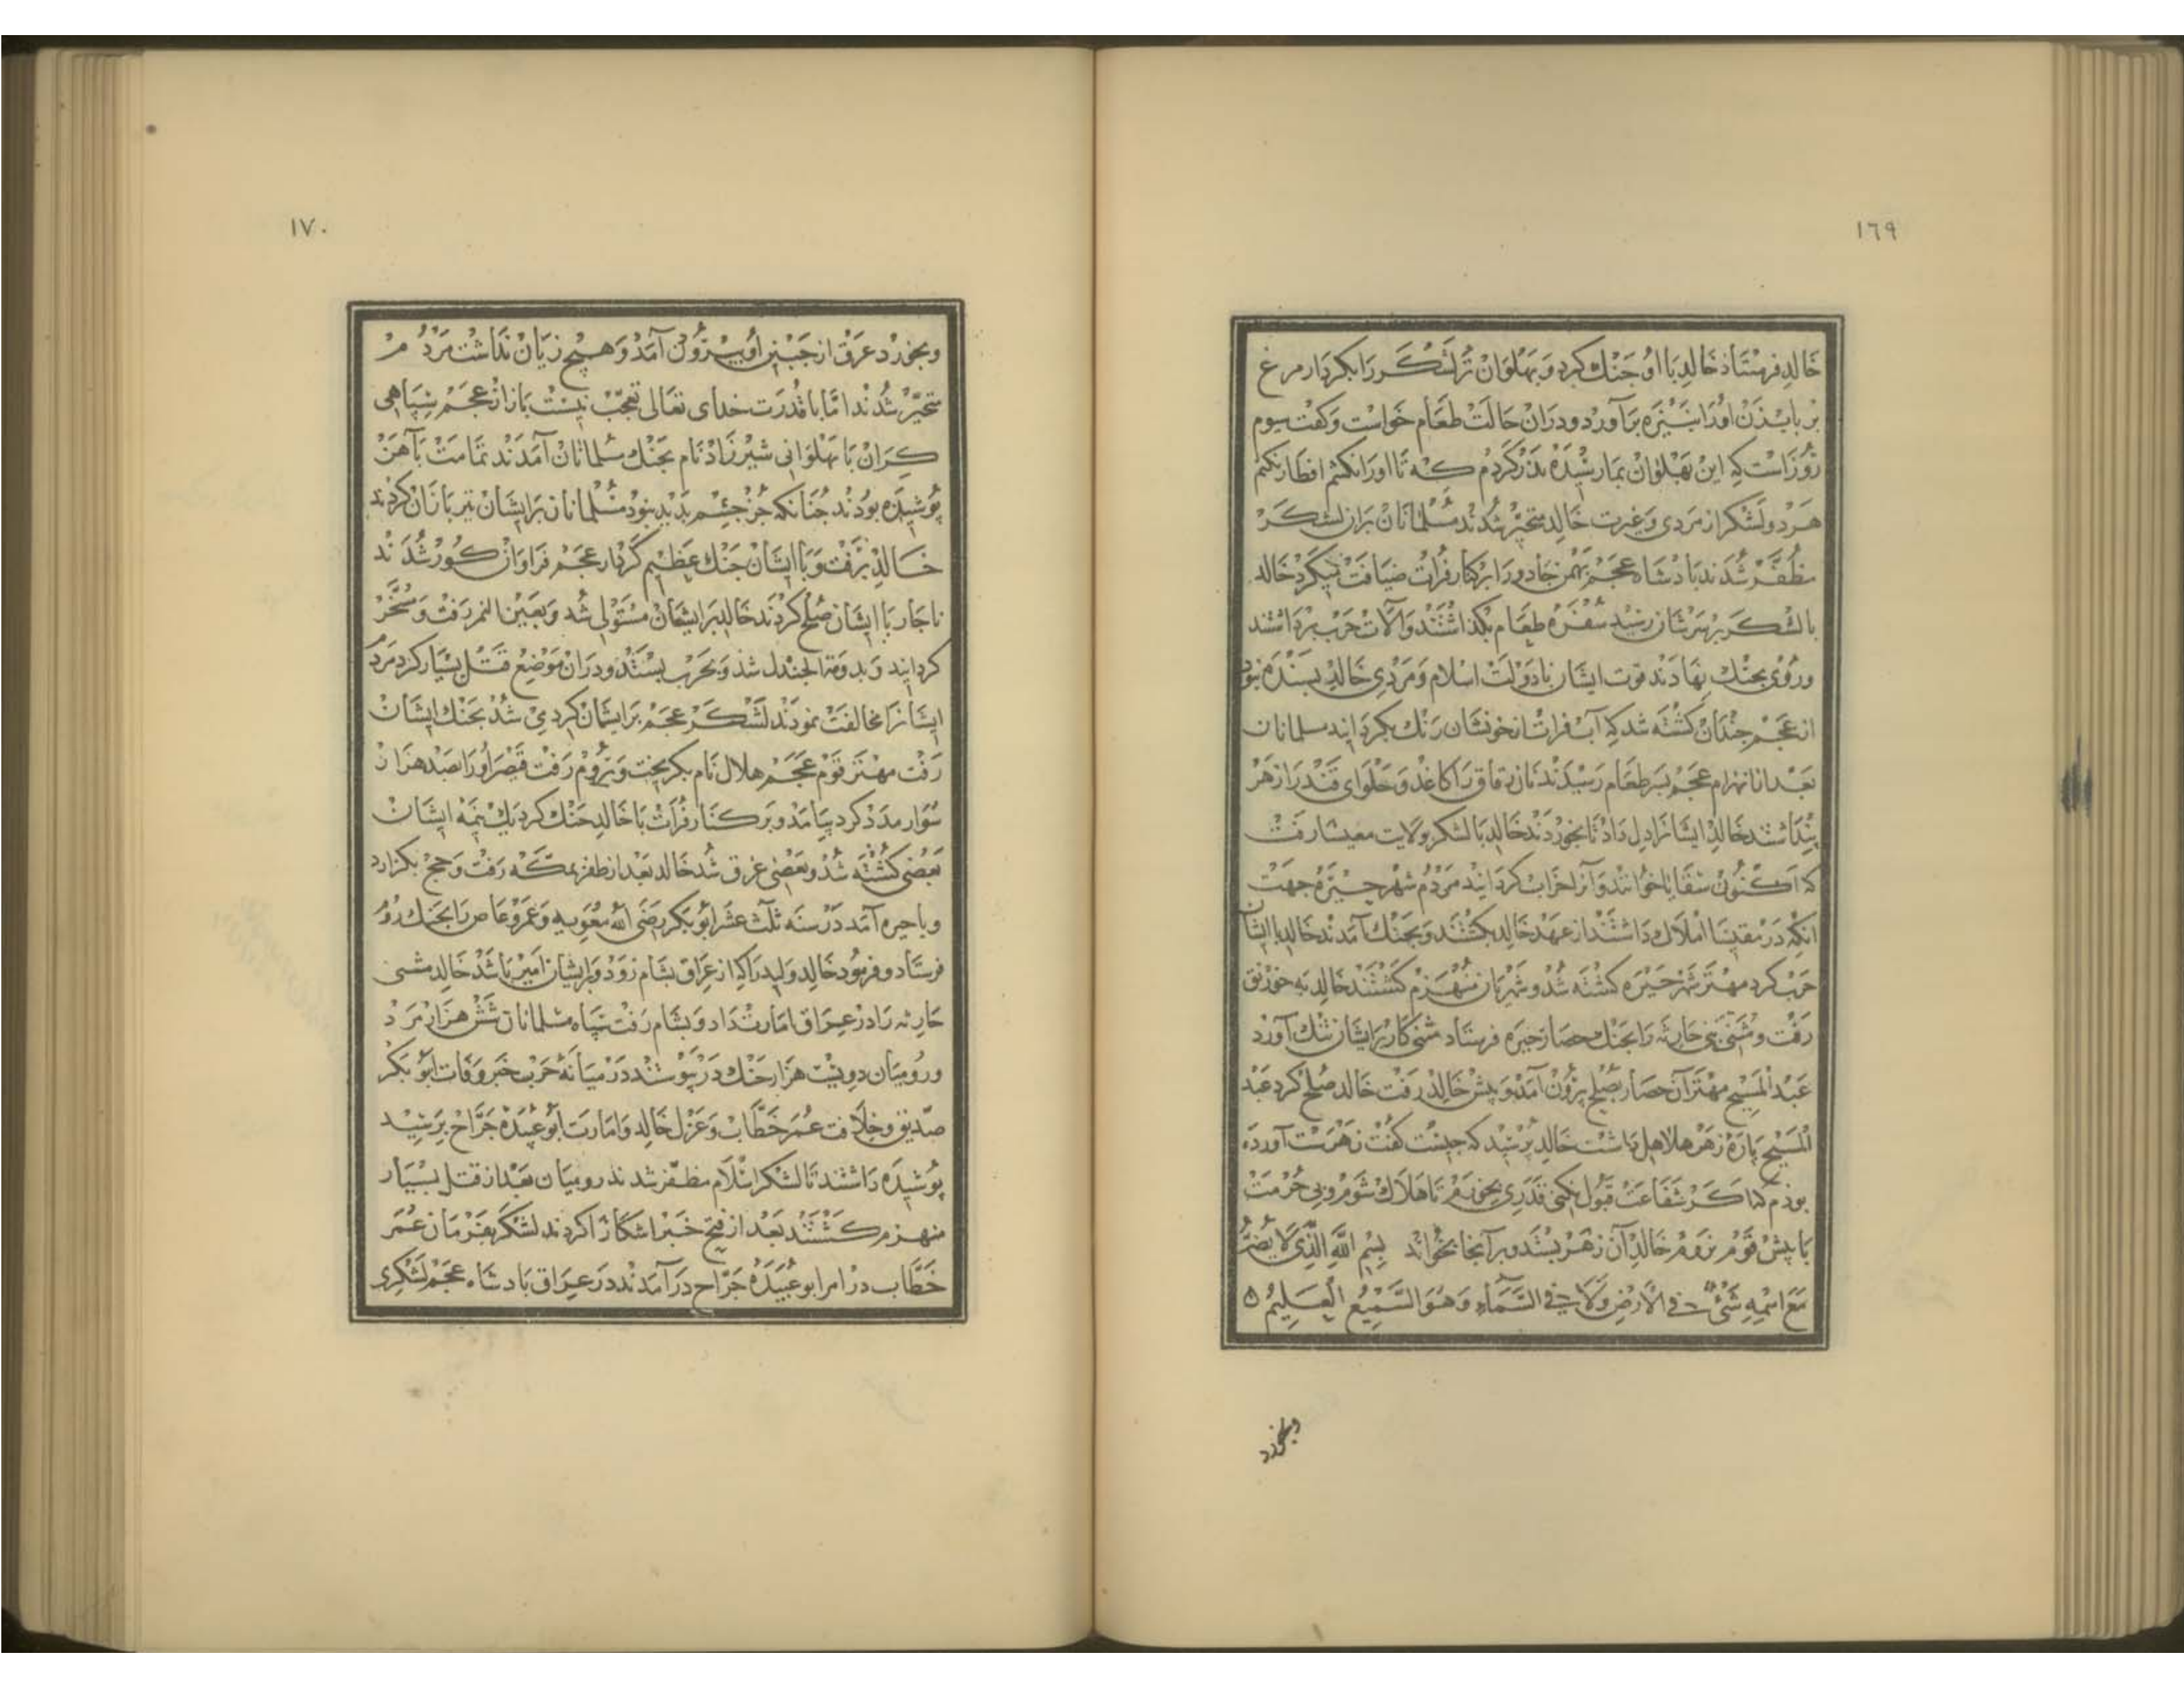 ١٦٩
خالد فرستاذ خالد با او جنك كرد و بهلوان ترلشكر را بكردار مرغ
بر بابزن اورا بنيزه برآورد و دران حالت طعام خواست و كفت سيوم
روز است كه اين بهلوان بمار رسيده نذر كردم كه تا اورا نكشم افطار نكنم
هر دو لشكر از مردى و غيرت خالد متحير شدند مسلمانان بران لشكر
مظفر شدند بادشاه عجم بهمن جادو را بر كنار فرات ضيافت ميكرد خالد
بالشكر بر سرشان رسيد سفره طعام بكذاشتند و آلات حرب برداشتند
و روى بجنك نهادند قوت ايشان با دولت اسلام و مردى خالد بسنده نبود
از عجم جندان كشته شد كه آب فرات از خونشان رنك بكردانيد مسلمانان
بعد از انهزام عجم بسر طعام رسيدند نان رقاق را كاغذ و حلواى قند را زهر
بنداشتند خالد ايشانرا دل داد تا بخوردند خالد با لشكر بولايت معيشا رفت
كه اكنون سقايا خوانند و آنرا خراب كردانيد مردم شهر حيره جهت
انكه در مقيشا املاك داشتند از عهد خالد بكشتند و بجنك آمدند خالد با ايشان
حرب كرد مهتر شهر حيره كشته شد و شهريان منهزم كشتند خالد به خورنق
رفت و مثنى بنى حارثه را بجنك حصار حيره فرستاد مثنى كار بر ايشان تنك آورد
عبد المسيح مهتر آن حصار بصلح برون آمد و بيش خالد رفت خالد صلح كرد عبد
المسيح پاره زهر هلاهل داشت خالد برسيد كه جيست كفت زهرست آورده
بوذم كه اكر شفاعت قبول نكنى قدرى بخورم تا هلاك شوم و بى حرمت
با پيش قوم نروم خالد آن زهر بستد و برآنجا بخواند بسم الله الذي لا يضر
مع اسمه شئ في الارض ولا في السماء وهو السميع العليم ٥
وبخورد
١٧٠
و بخورد عرق از جبين او بيرون آمد و هيج زيان نداشت مردم
متحير شدند اما با قدرت خداى تعالى تعجب نيست باز از عجم سپاهى
كران با بهلوانى شيرزاد نام بجنك مسلمانان آمدند تمامت بآهن
پوشيده بودند جنانكه جز جشم بديد نبود مسلمانان برايشان تير باران كردند
خالد برفت و با ايشان جنك عظيم كرد از عجم فراوان كور شدند
ناجار با ايشان صلح كردند خالد بر ايشان مستولى شد و بعين التمر رفت و مسخر
كردانيد و بدومة الجندل شد و بحرب بستد و دران موضع قتل بسيار كرد مردم
ايشانرا مخالفت نمودند لشكر عجم بر ايشان كرد مى شد بجنك ايشان
رفت مهتر قوم عجم هلال نام بكريخت و بروم رفت قيصر اورا بصد هزار
سوار مدد كرد بيامد و بر كنار فرات با خالد جنك كرد يك نيمه ايشان
بعضى كشته شد و بعضى غرق شد خالد بعد از ظفر بمكه رفت و حج بكزارد
و با حيره آمد در سنه ثلث عشر ابو بكر رضى الله معويه و عمرو عاص را بجنك روم
فرستاد و فرمود خالد وليد را كه از عراق بشام رود و بر ايشان امير باشد خالد مثنى
حارثه را در عراق امارت داد و بشام رفت سپاه مسلمانان شش هزار مرد
و روميان دويست هزار جنك در پيوستند در ميانه حرب خبر وفات ابو بكر
صديق و خلافت عمر خطاب و عزل خالد و امارت ابو عبيده جراح برسيد
پوشيده داشتند تا لشكر اسلام مظفر شدند روميان بعد از قتل بسيار
منهزم كشتند بعد از فتح خبر اشكارا كردند لشكر بفرمان عمر
خطاب در امر ابو عبيده جراح در آمدند در عراق بادشاه عجم لشكرى